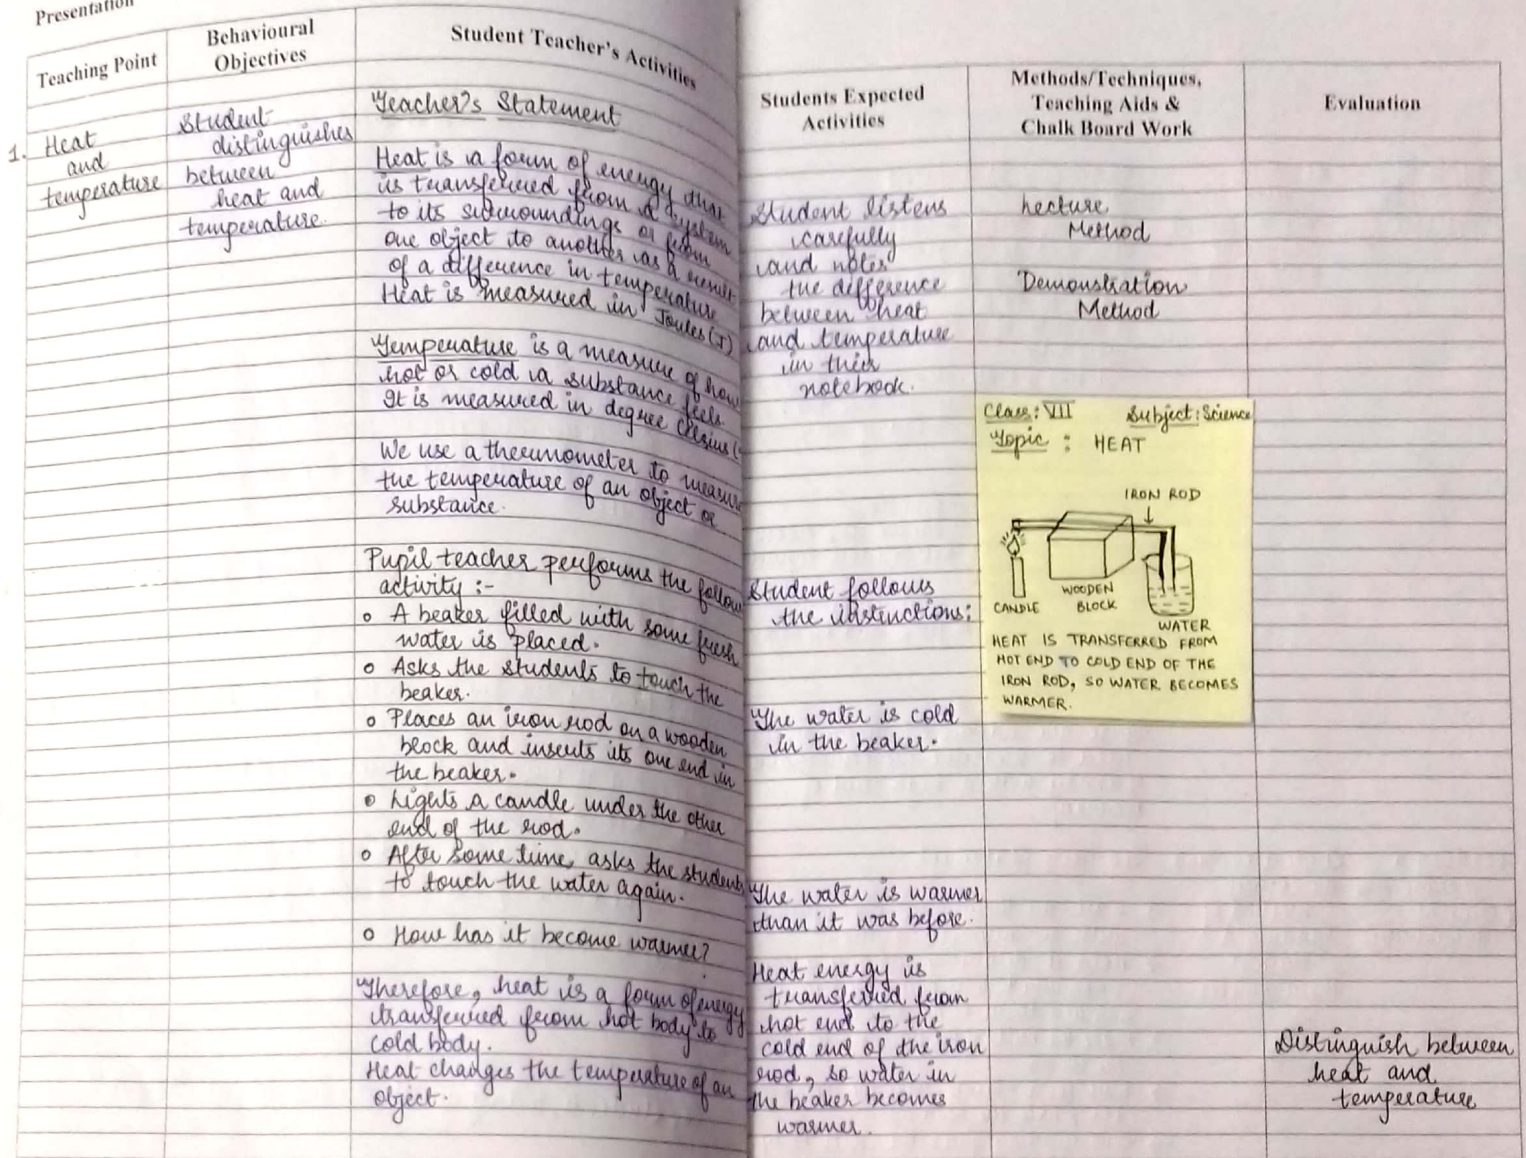 Presentation
Teaching Point
Behavioural
Objectives
Student Teacher's Activities
1. Heat
and
temperature
Student
distinguishes
between
heat and
temperature.
Teacher's Statement
Heat is a form of energy that
is transferred from a system
to its surroundings or from
one object to another as a
of a difference in temperature
Heat is measured in Joules (J)
Temperature is a measure of how
hot or cold a substance feels.
It is measured in degree Celsius (
We use a thermometer to measure
the temperature of an object or
substance.
Pupil teacher performs the
activity :-
o A beaker filled with some fresh
water is placed.
o Asks the students to touch the
beaker.
o Places an iron rod on a wooden
block and inserts its one end in
the beaker.
o Lights a candle under the other
end of the rod.
o After some time, asks the students
to touch the water again.
o How has it become warmer?
Therefore, heat is a form of energy
transferred from hot body to
cold body.
Heat changes the temperature of an
object.
Students Expected
Activities
Student listens
carefully
and notes
the difference
between heat
and temperature
in their
notebook.
Student follows
the instructions:
The water is cold
in the beaker.
The water is warmer
than it was before.
Heat energy is
transferred from
hot end to the
cold end of the iron
rod, so water in
the beaker becomes
warmer.
Methods/Techniques,
Teaching Aids &
Chalk Board Work
Lecture
Method
Demonstration
Method
Class: VII Subject: Science
Topic : HEAT
IRON ROD
CANDLE
WOODEN
BLOCK
WATER
HEAT IS TRANSFERRED FROM
HOT END TO COLD END OF THE
IRON ROD, SO WATER BECOMES
WARMER.
Evaluation
Distinguish between
heat and
temperature